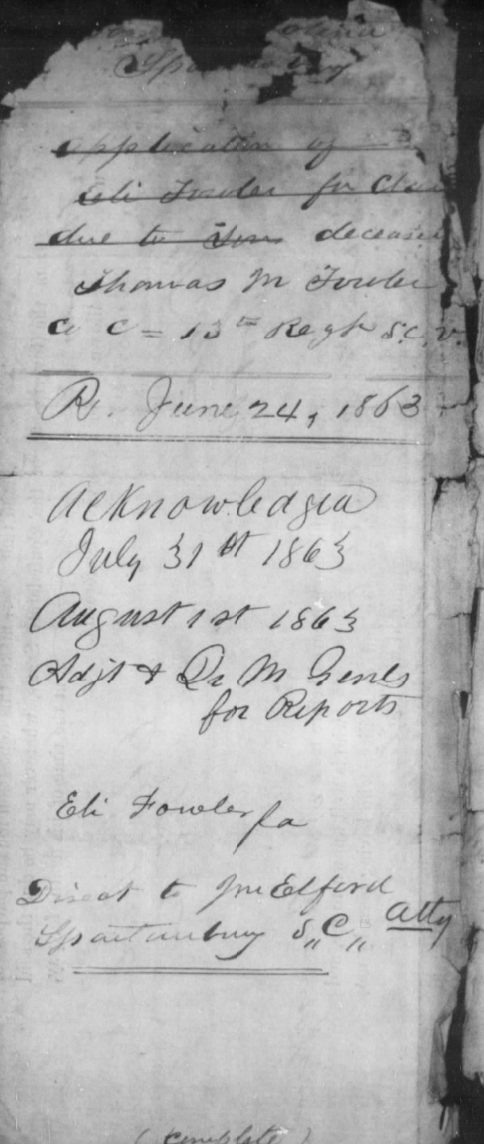 Application of
Eli Fowler for
due to deceased
Thomas M Fowler
Co C = 13th Regt S.C.V.
R. June 24, 1863
Acknowledged
July 31st 1863
August 1st 1863
Adjt & Qr M Genls
for Reports
Eli Fowler fa
Direct to Elford
Spartanburg S,,C,, Atty
(complete)